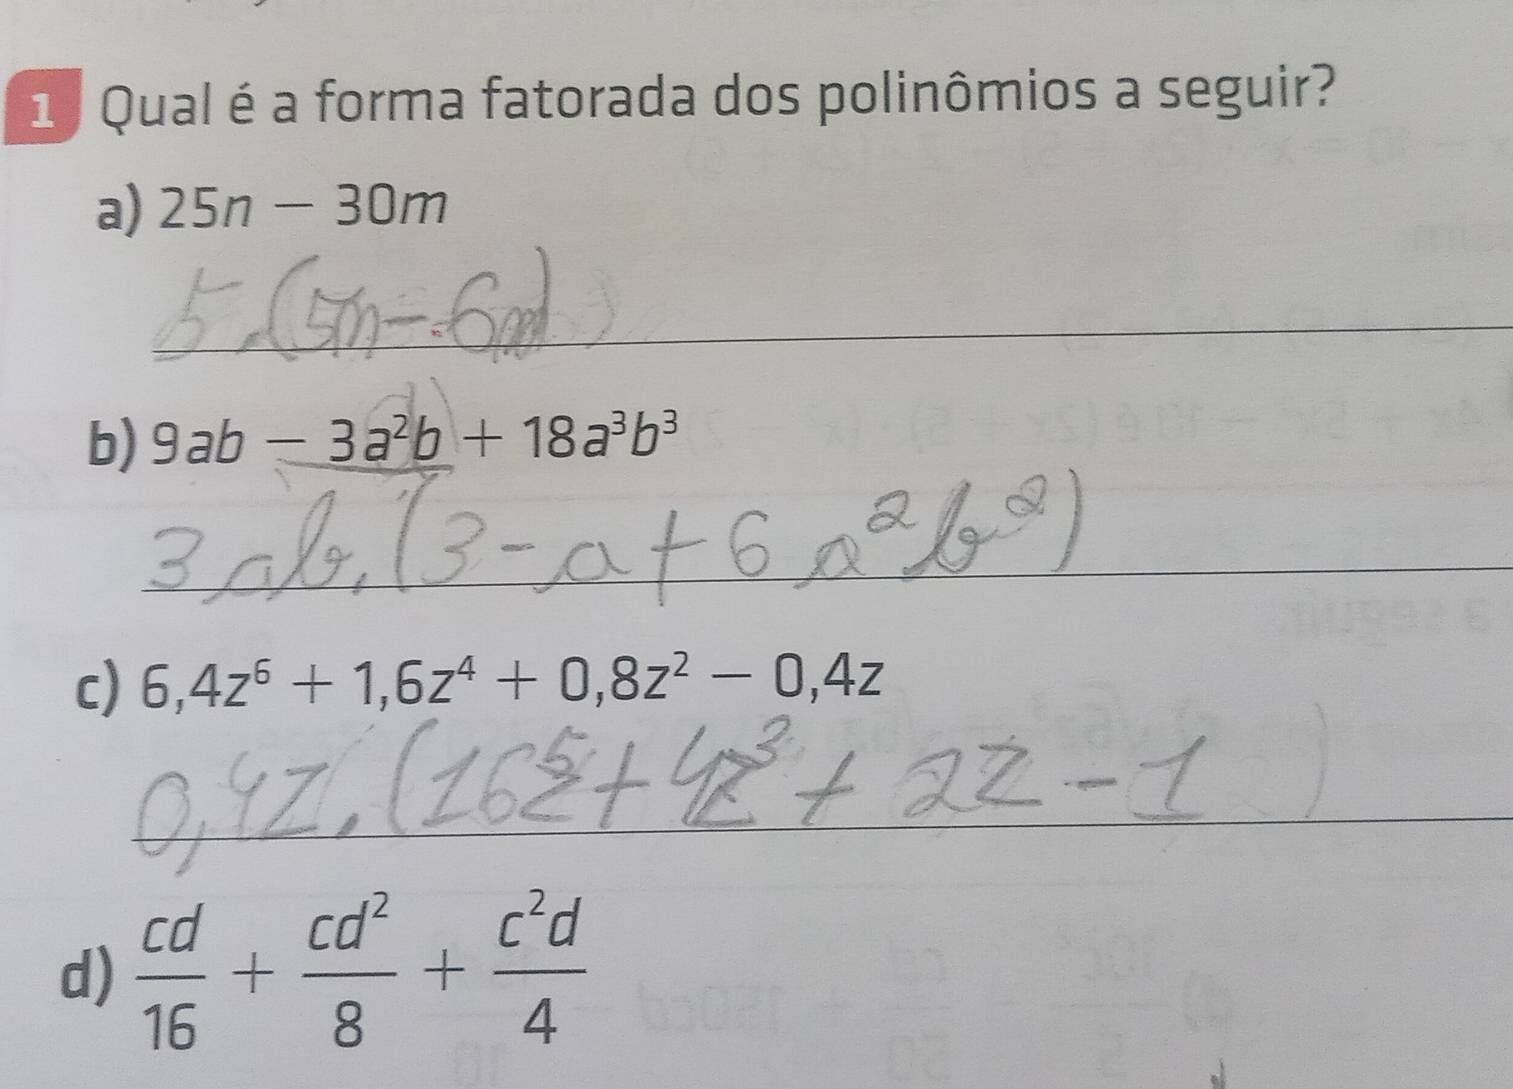 1 Qual é a forma fatorada dos polinômios a seguir?
a) 25n − 30m
5.(5n−6m)
b) 9ab − 3a²b + 18a³b³
3ab.(3−a+6a²b²)
c) 6,4z⁶ + 1,6z⁴ + 0,8z² − 0,4z
0,4z.(16z⁵+4z³+2z−1)
d) cd/16 + cd²/8 + c²d/4